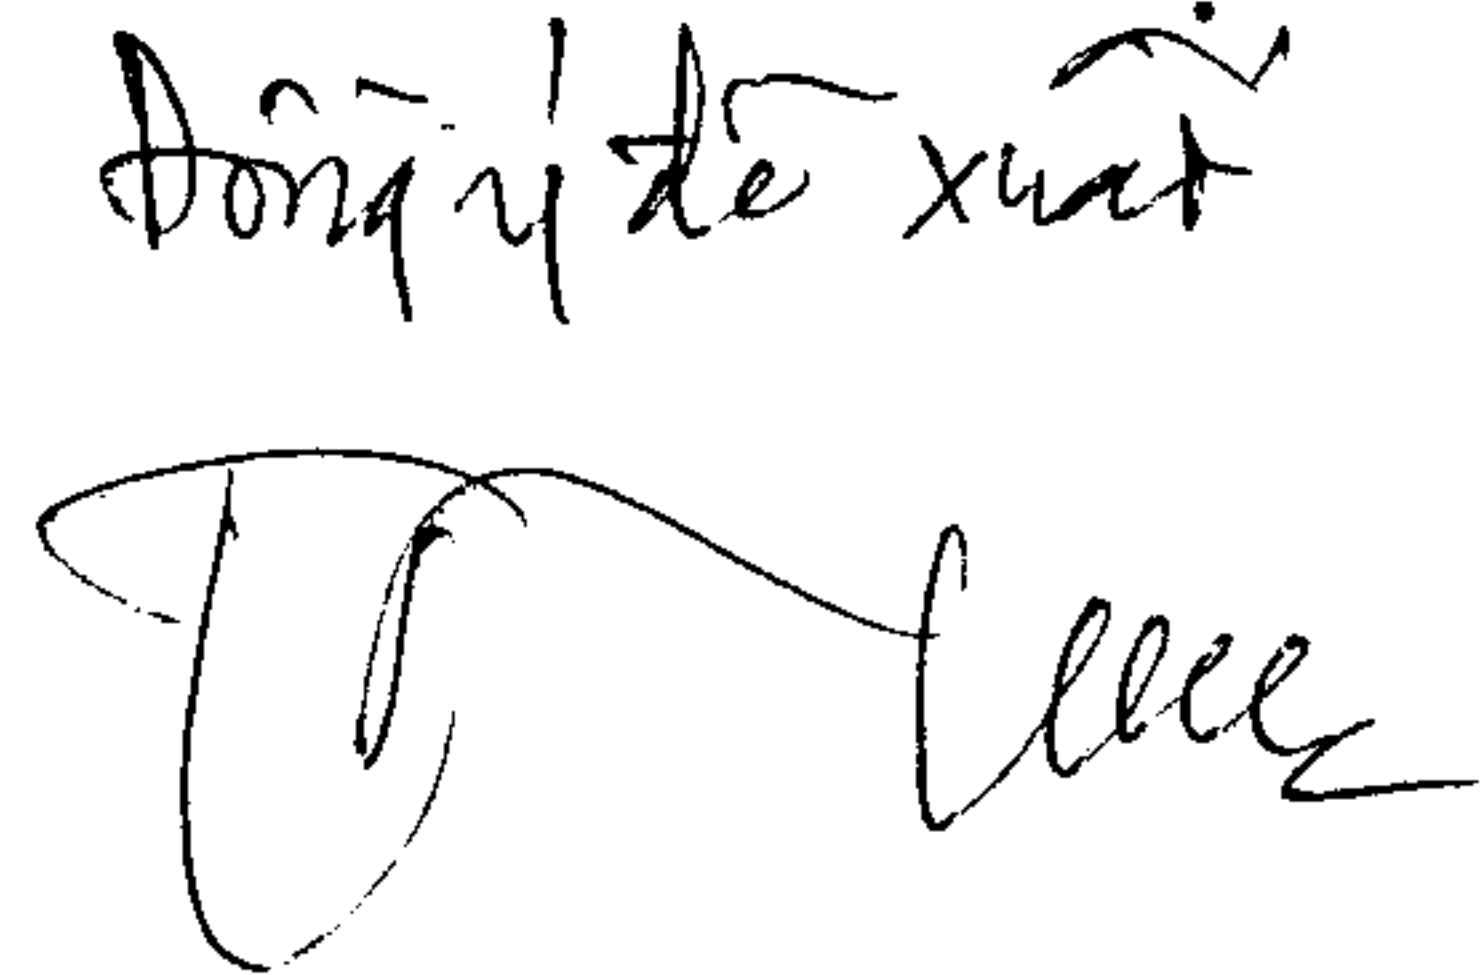 Đồng ý đề xuất